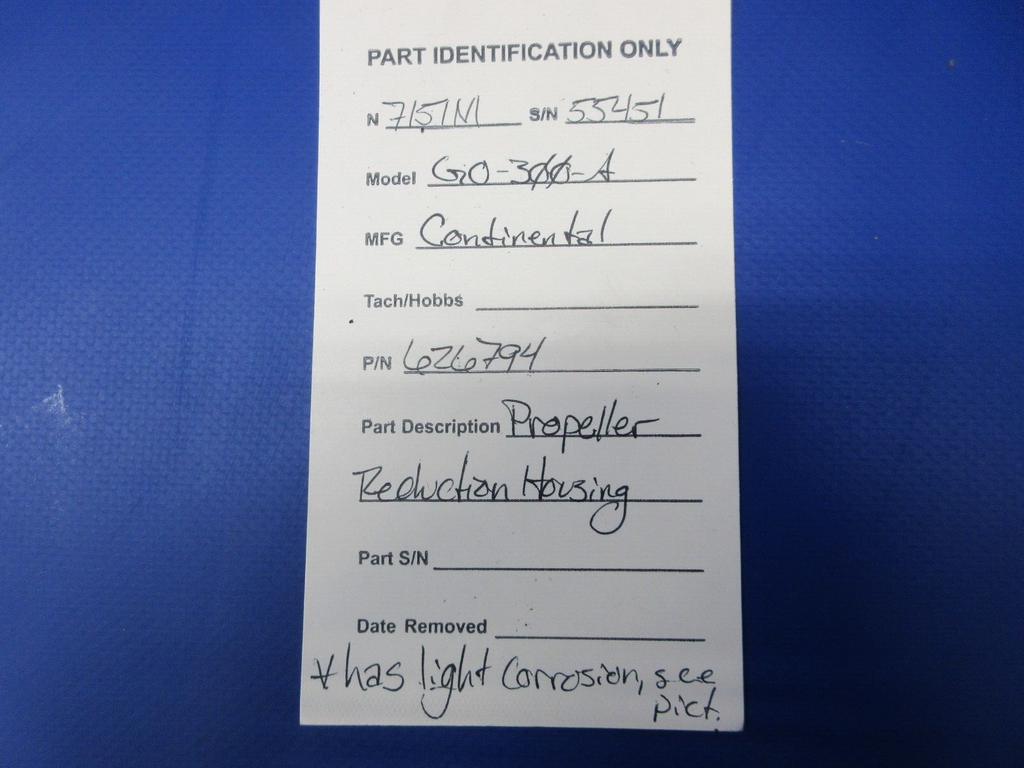 PART IDENTIFICATION ONLY
N 7157M S/N 55451
Model GO-300-A
MFG Continental
Tach/Hobbs
P/N 626794
Part Description Propeller
Reduction Housing
Part S/N
Date Removed
* has light corrosion, see
pict.